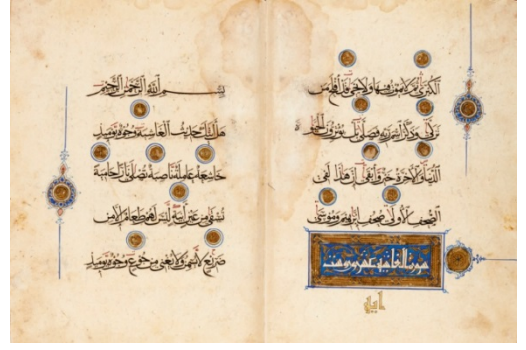 الكبرى ثم لا يموت فيها ولا يحيى قد افلح من
تزكى وذكر اسم ربه فصلى بل تؤثرون الحيوة
الدنيا والاخرة خير وابقى ان هذا لفى
الصحف الاولى صحف ابرهيم وموسى
سورة الغاشية عشرون وست
آية
بسم الله الرحمن الرحيم
هل اتاك حديث الغاشية وجوه يومئذ
خاشعة عاملة ناصبة تصلى نارا حامية
تسقى من عين آنية ليس لهم طعام الا من
ضريع لا يسمن ولا يغنى من جوع وجوه يومئذ